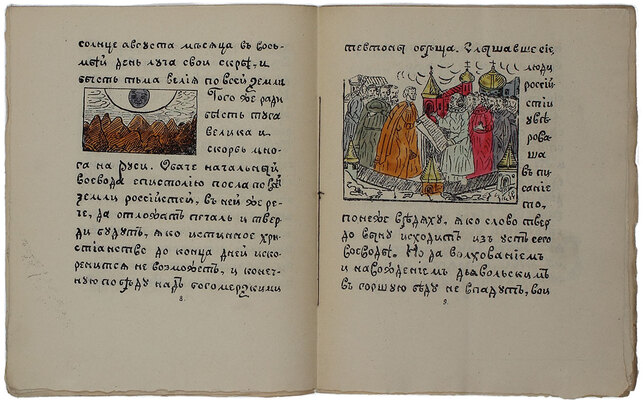 солнце августа мѣсяца въ вось-
мый день луча свои скры, и
бысть тьма велія по всей земли
Того же ради
бысть туга
велика и
скорбь мно-
га на Руси. Обаче начальный
воевода епистолію посла по всѣй
земли россійстей, въ ней же ре-
че, да отложатъ печаль и тверд-
ди будутъ, яко истинное хри-
стіанство до конца дней иско-
ренится не возможетъ, и конеч-
ную побѣду надъ богомерзкими
8.
тевтоны обѣща. Слышавше сіе
людіе
россій
стіи
увѣ-
рова-
ша
въ пи-
саніе
то,
понеже вѣдяху, яко слово твер-
до выну исходитъ изъ устъ сего
воеводы. Но да волхованіемъ
и навожденіемъ дьявольскимъ
въ горшую бѣду не впадутъ, вои
9.